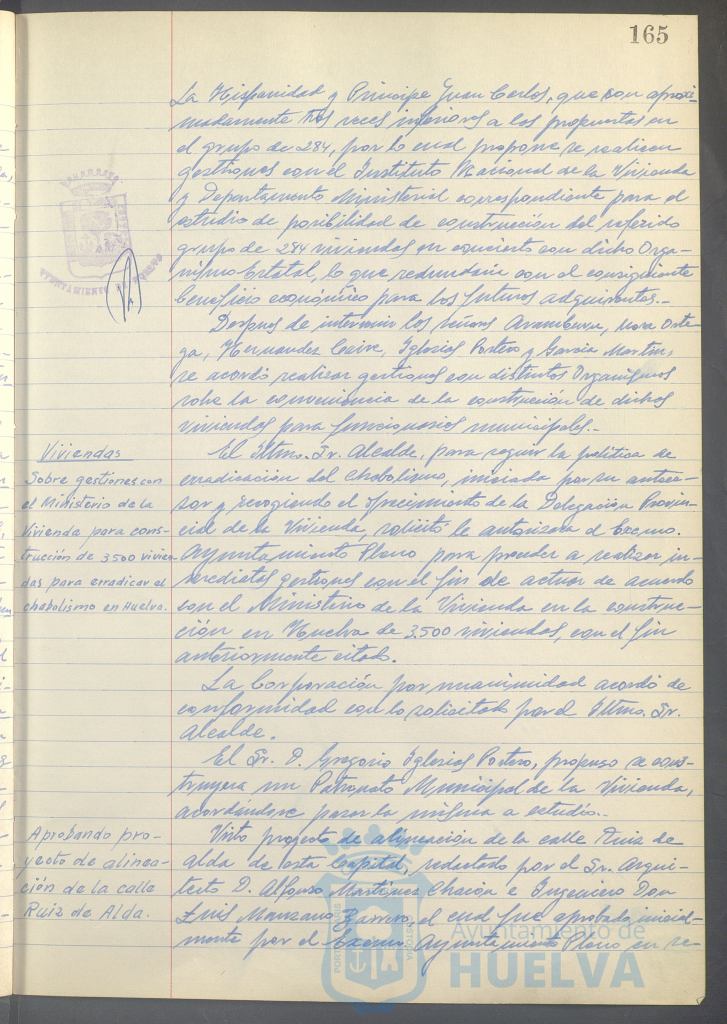 165
La Hispanidad y Príncipe Juan Carlos, que son aproxi-
madamente tres veces inferiores a los propuestos en
el grupo de 284, por lo cual propone se realicen
gestiones con el Instituto Nacional de la Vivienda
y Departamento Ministerial correspondiente para el
estudio de posibilidad de construcción del referido
grupo de 284 viviendas en concierto con dicho Orga-
nismo Estatal, lo que redundaria con el consiguiente
beneficio económico para los futuros adquirentes.-
Despues de intervenir los señores Aramburu, Mora Orte-
ga, Hernandez Caire, Iglesias Portero y Garcia Martin,
se acordó realizar gestiones con distintos Organismos
sobre la conveniencia de la construcción de dichas
viviendas para funcionarios municipales.-
Viviendas
Sobre gestiones con
el Ministerio de la
Vivienda para cons-
trucción de 3500 vivien-
das para erradicar el
chabolismo en Huelva.
El Iltmo. Sr. Alcalde, para seguir la política de
erradicación del chabolismo, iniciada por su antece-
sor y recogiendo el ofrecimiento de la Delegación Provin-
cial de la Vivienda, solicitó le autorizara el Excmo.
Ayuntamiento Pleno para proceder a realizar in-
mediatas gestiones con el fin de actuar de acuerdo
con el Ministerio de la Vivienda en la construc-
ción en Huelva de 3.500 viviendas, con el fin
anteriormente citado.
La Corporación por unanimidad acordó de
conformidad con lo solicitado por el Iltmo. Sr.
Alcalde.
El Sr. D. Gregorio Iglesias Portero, propuso se cons-
truyera un Patronato Municipal de la Vivienda,
acordándose pasar la misma a estudio.-
Aprobando pro-
yecto de alinea-
ción de la calle
Ruiz de Alda.
Visto proyecto de alineación de la calle Ruiz de
Alda de esta Capital, redactado por el Sr. Arqui-
tecto D. Alfonso Martínez Chacón e Ingeniero Don
Luis Manzano Barrero, el cual fue aprobado inicial-
mente por el Excmo. Ayuntamiento Pleno en se-
Ayuntamiento de
HUELVA